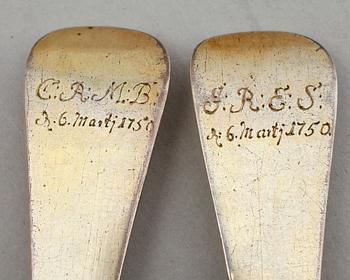 C: A: M: B:
d. 6. Martj 1750
J: R: E: S:
d: 6. Martj 1750.